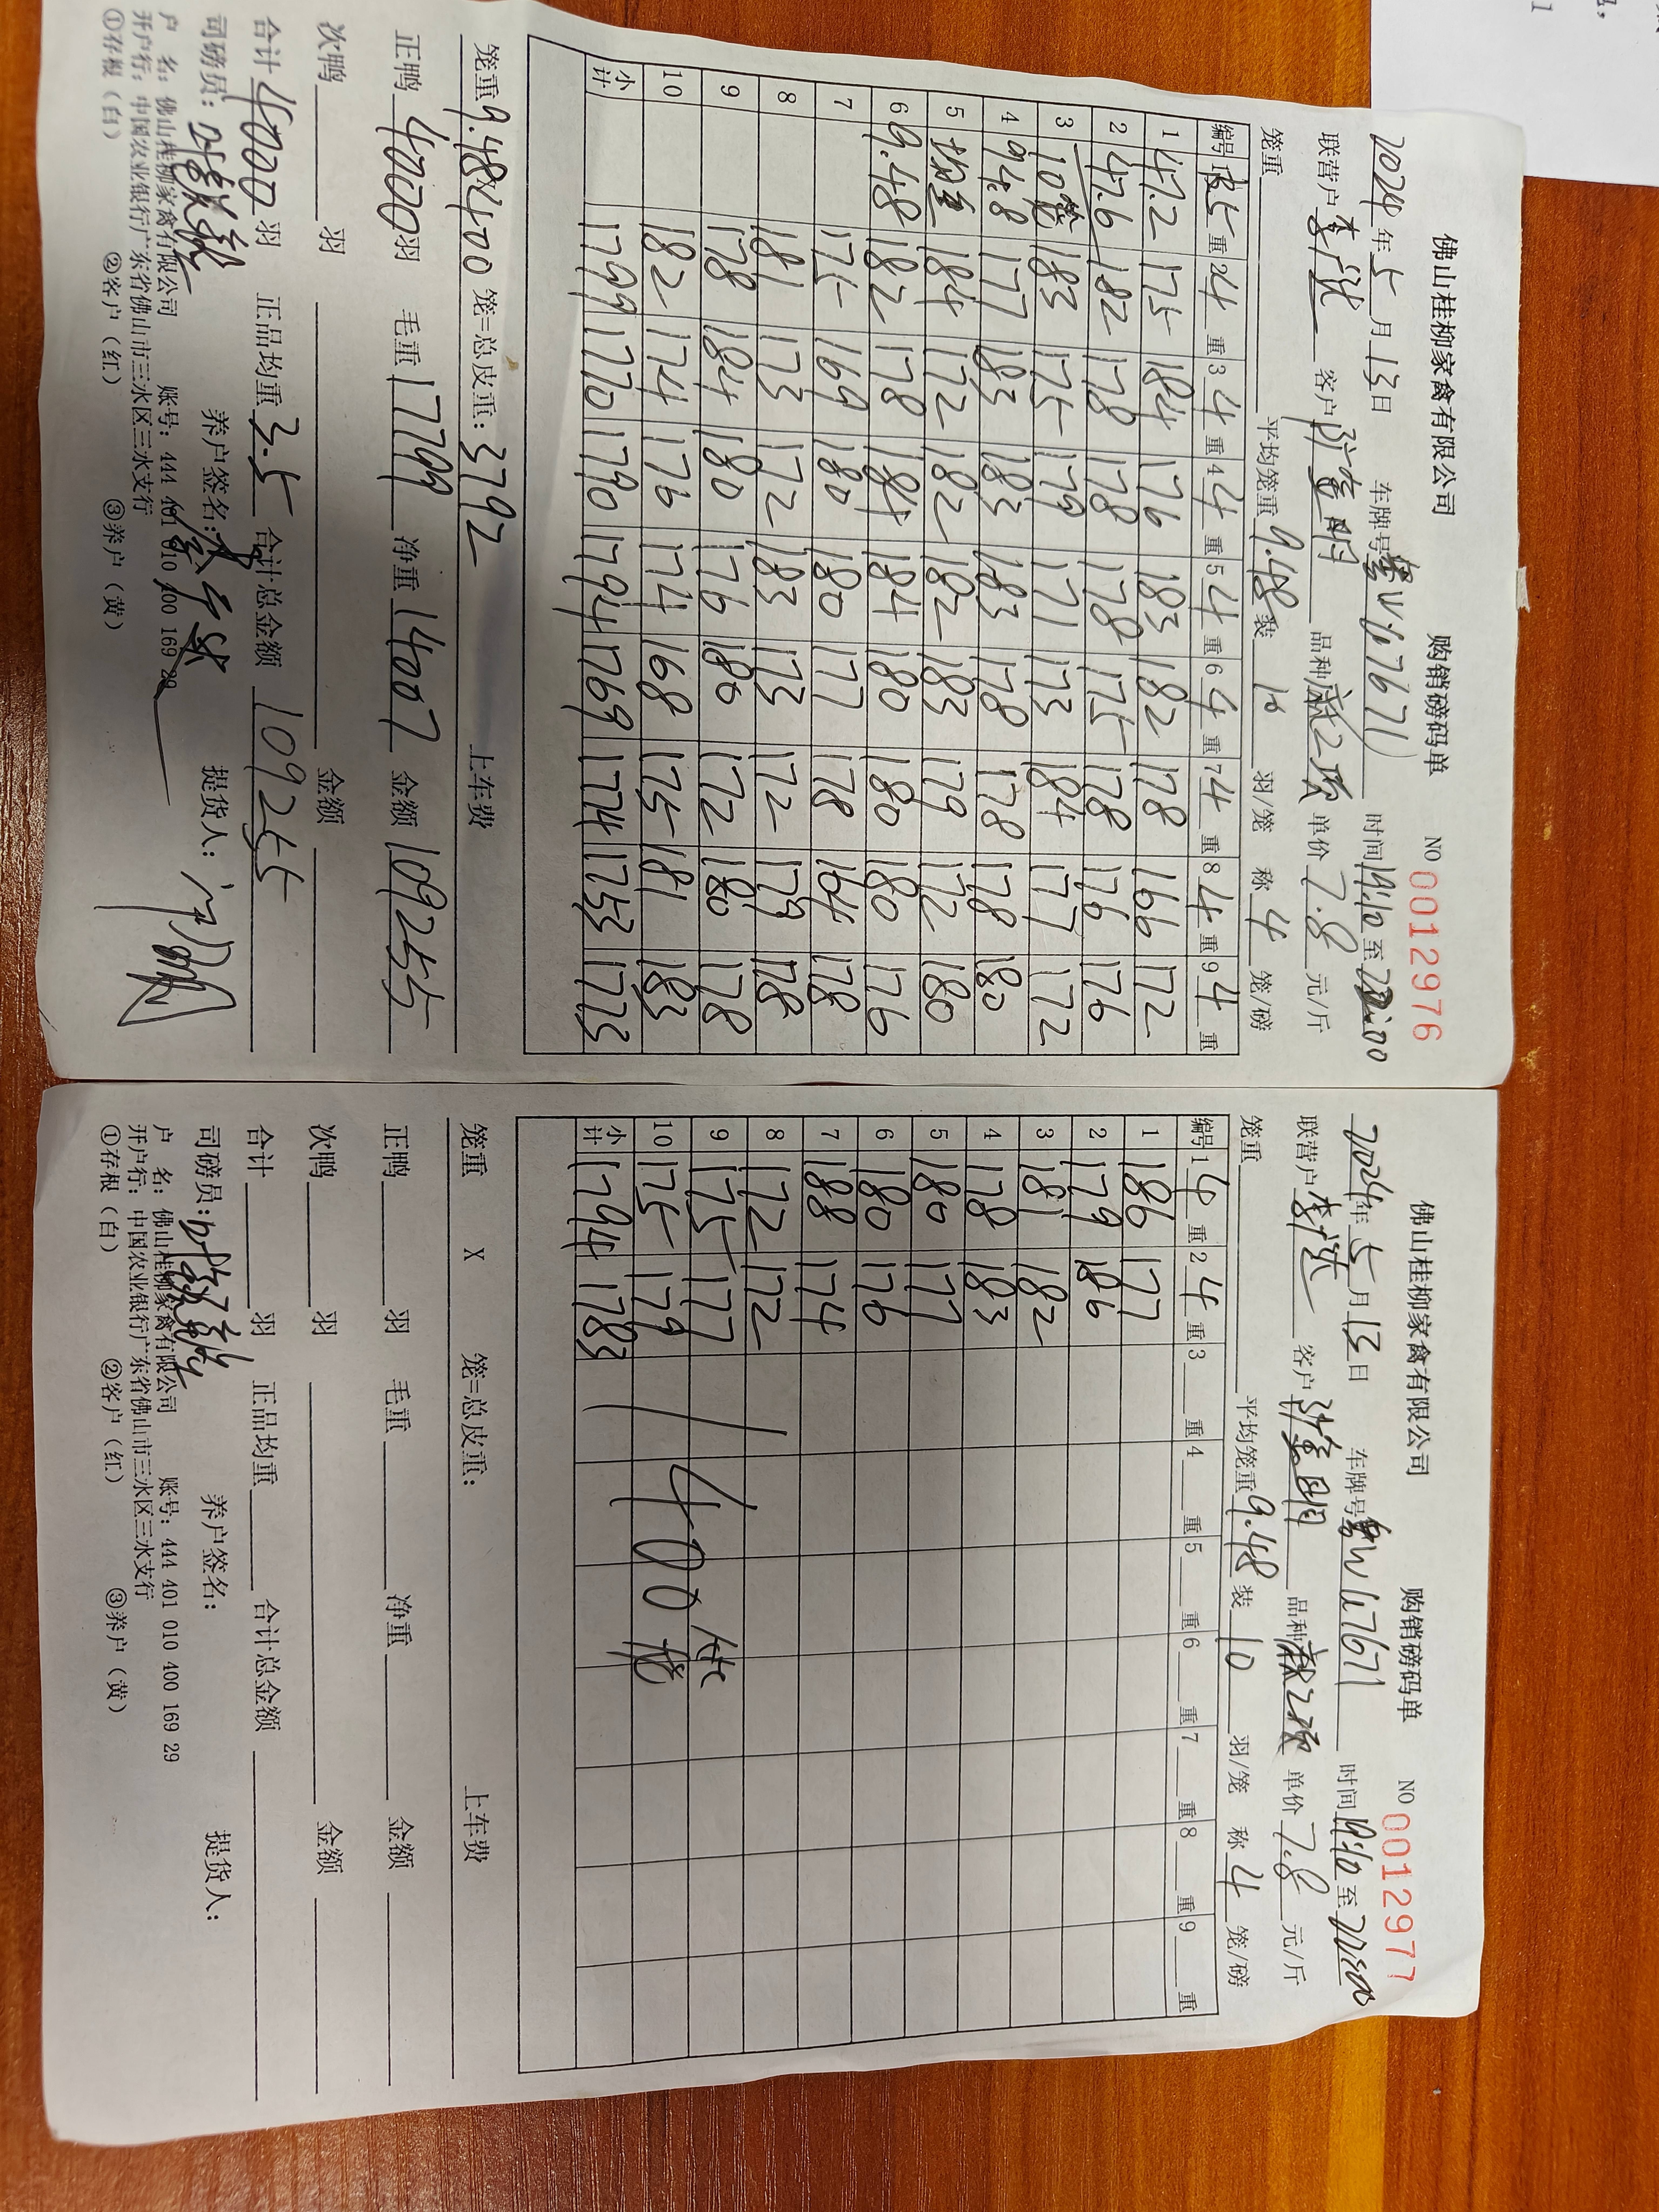 佛山桂柳家禽有限公司 购销磅码单 NO 0012976
2024年5月13日 车牌号 粤W67671 时间 19:10 至 22:00
联营户 李洪 客户 陈金明 品种 单价 7.8 元/斤
笼重 平均笼重 9.48 装 10 羽/笼 称 4 笼/磅
编号 1 5 重 2 4 重 3 4 重 4 4 重 5 4 重 6 4 重 7 4 重 8 4 重 9 4 重
1 47.2 175 184 176 183 182 178 166 172
2 47.6 182 178 178 178 175 178 176 176
3 10笼 183 175 179 171 173 184 177 172
4 94.8 177 183 183 183 178 178 178 180
5 均重 184 172 182 182 183 179 172 180
6 9.48 182 178 184 184 180 180 180 176
7 175 169 180 180 177 178 164 178
8 181 173 172 183 173 172 179 178
9 178 184 180 176 180 172 180 178
10 182 174 176 174 168 175 181 183
小计 1799 1770 1790 1794 1769 1774 1753 1773
笼重 9.48 X 400 笼=总皮重: 3792 上车费
正鸭 4000 羽 毛重 17799 净重 14007 金额 109255
次鸭 羽 金额
合计 4000 羽 正品均重 3.5 合计总金额 109255
司磅员: 养户签名: 提货人:
户 名: 佛山桂柳家禽有限公司 账号: 444 401 010 400 169 29
开户行: 中国农业银行广东省佛山市三水区三水支行
①存根(白) ②客户(红) ③养户(黄)
佛山桂柳家禽有限公司 购销磅码单 NO 0012977
2024年5月13日 车牌号 粤W67671 时间 19:10 至 22:00
联营户 李洪 客户 陈金明 品种 单价 7.8 元/斤
笼重 平均笼重 9.48 装 10 羽/笼 称 4 笼/磅
编号 1 4 重 2 4 重 3 重 4 重 5 重 6 重 7 重 8 重 9 重
1 186 177
2 179 186
3 181 182
4 178 183
5 180 177
6 180 176
7 188 174
8 172 172
9 175 177
10 175 179 400笼
小计 1794 1783
笼重 X 笼=总皮重: 上车费
正鸭 羽 毛重 净重 金额
次鸭 羽 金额
合计 羽 正品均重 合计总金额
司磅员: 养户签名: 提货人:
户 名: 佛山桂柳家禽有限公司 账号: 444 401 010 400 169 29
开户行: 中国农业银行广东省佛山市三水区三水支行
①存根(白) ②客户(红) ③养户(黄)